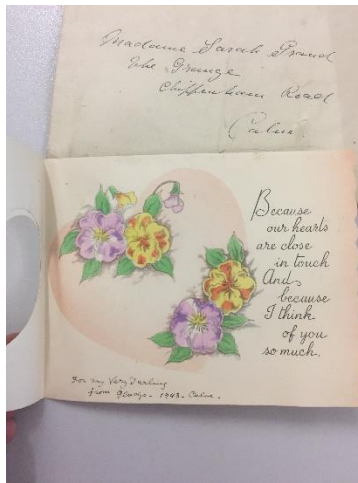 Madame Sarah Proud
The Grange
Chippenham Road
Calne.
Because
our hearts
are close
in touch
And
because
I think
of you
so much.
For my Very Darling
from Gladys - 1943 - Calne.